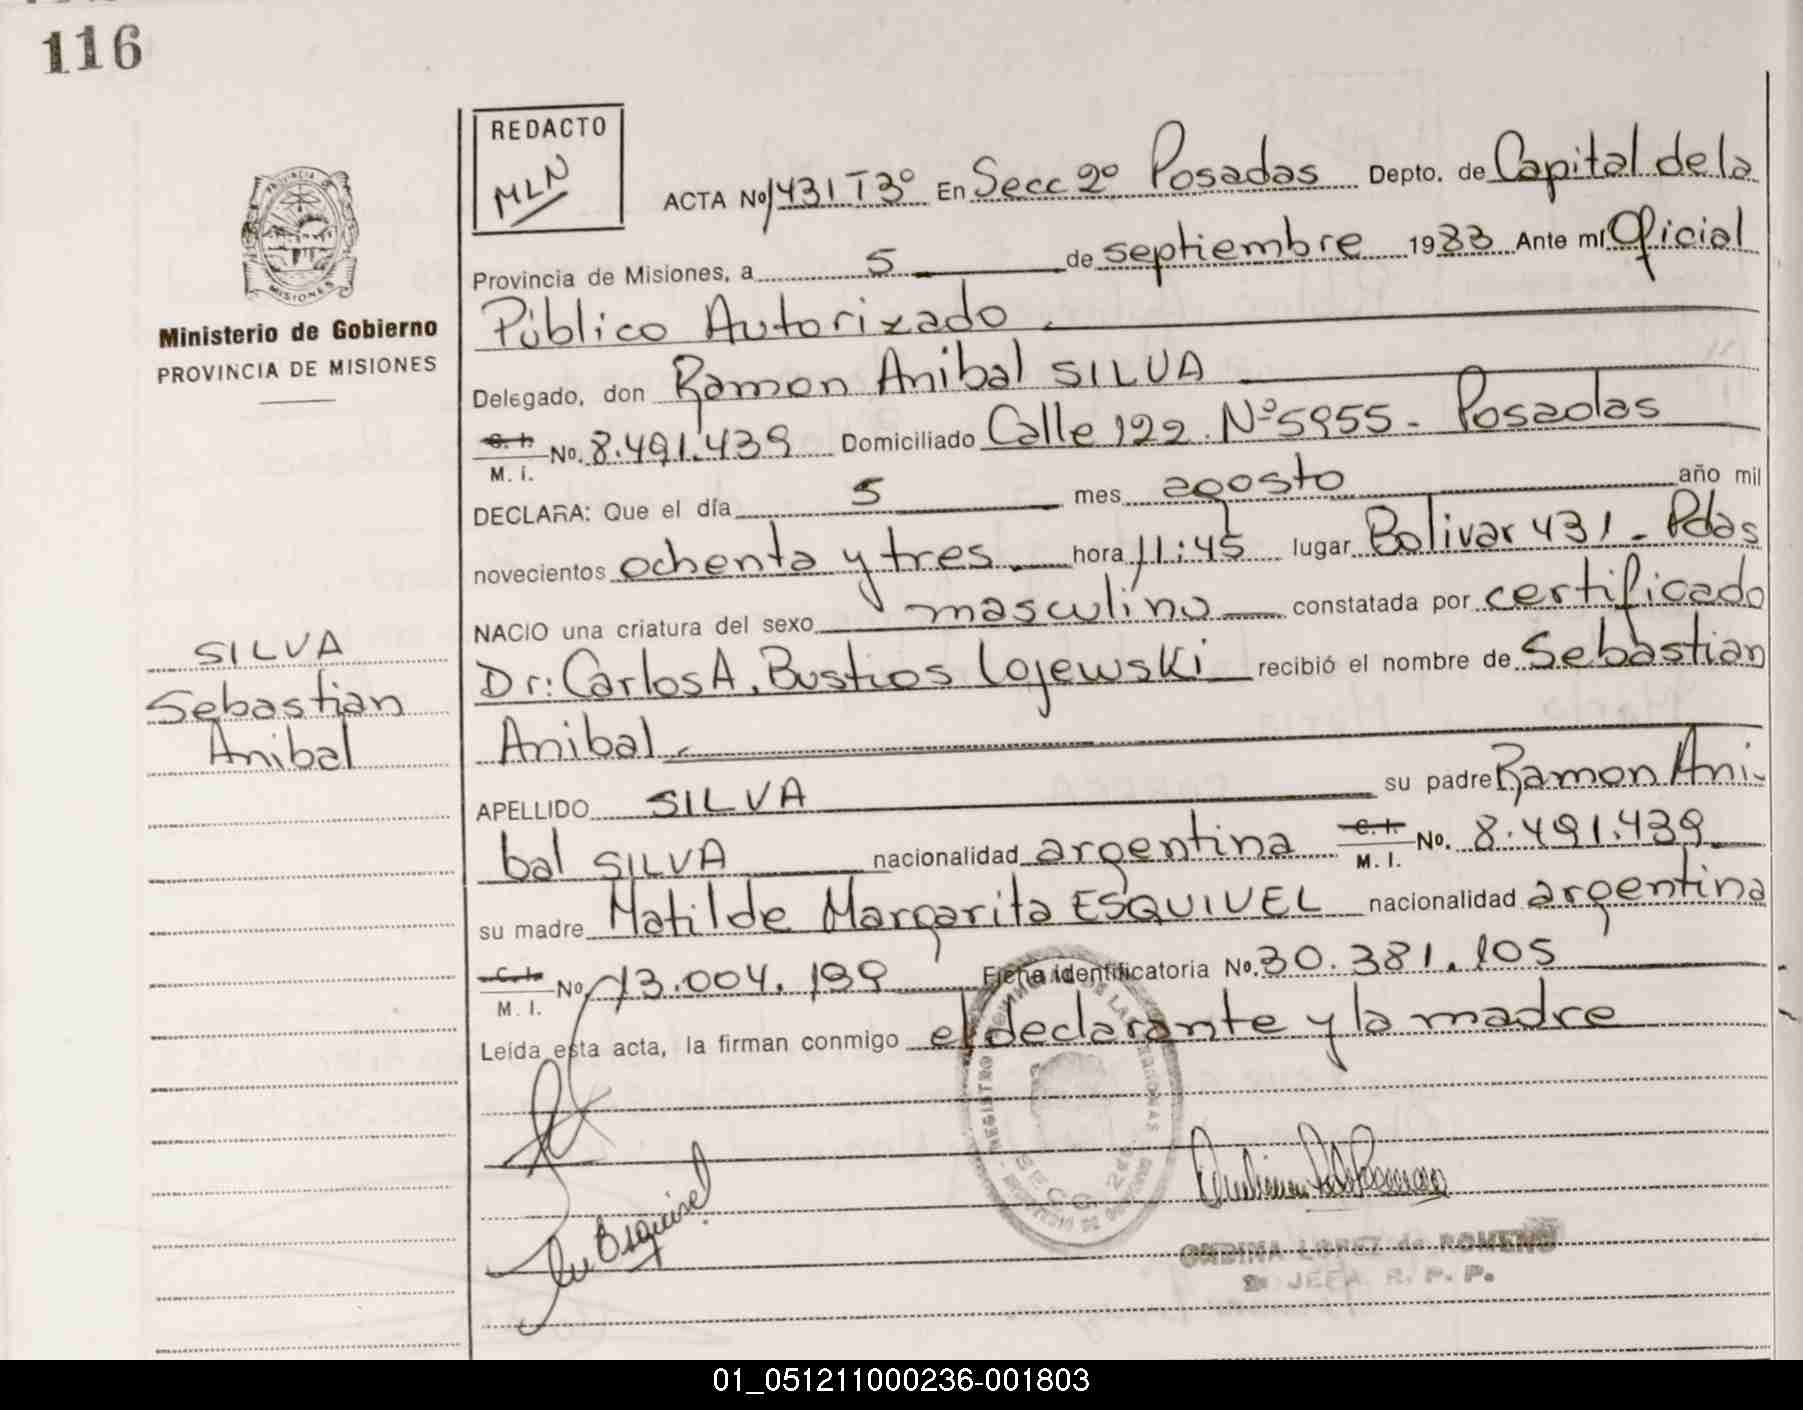 116
REDACTO
MLN
ACTA No 1431 T3º En Secc 2º Posadas Depto. de Capital de la
Provincia de Misiones, a 5 de septiembre 1983 Ante mí Oficial
Público Autorizado.
Delegado, don Ramon Anibal SILVA
C. I. M. I. No. 8.491.439 Domiciliado Calle 122. Nº 5955 - Posadas
DECLARA: Que el día 5 mes agosto año mil
novecientos ochenta y tres hora 11:45 lugar Bolivar 431 - Pdas
NACIO una criatura del sexo masculino constatada por certificado
Dr: Carlos A. Bustios Lojewski recibió el nombre de Sebastian
Anibal.
APELLIDO SILVA su padre Ramon Ani-
bal SILVA nacionalidad argentina C. I. M. I. No. 8.491.439
su madre Matilde Margarita ESQUIVEL nacionalidad argentina
C. I. M. I. No. 13.004.199 Ficha identificatoria No. 30.381.105
Leída esta acta, la firman conmigo el declarante y la madre
MISIONES
Ministerio de Gobierno
PROVINCIA DE MISIONES
SILVA
Sebastian
Anibal
Esquivel
ONDINA LOPEZ de ROMERO
JEFA R. P. P.
01_051211000236-001803